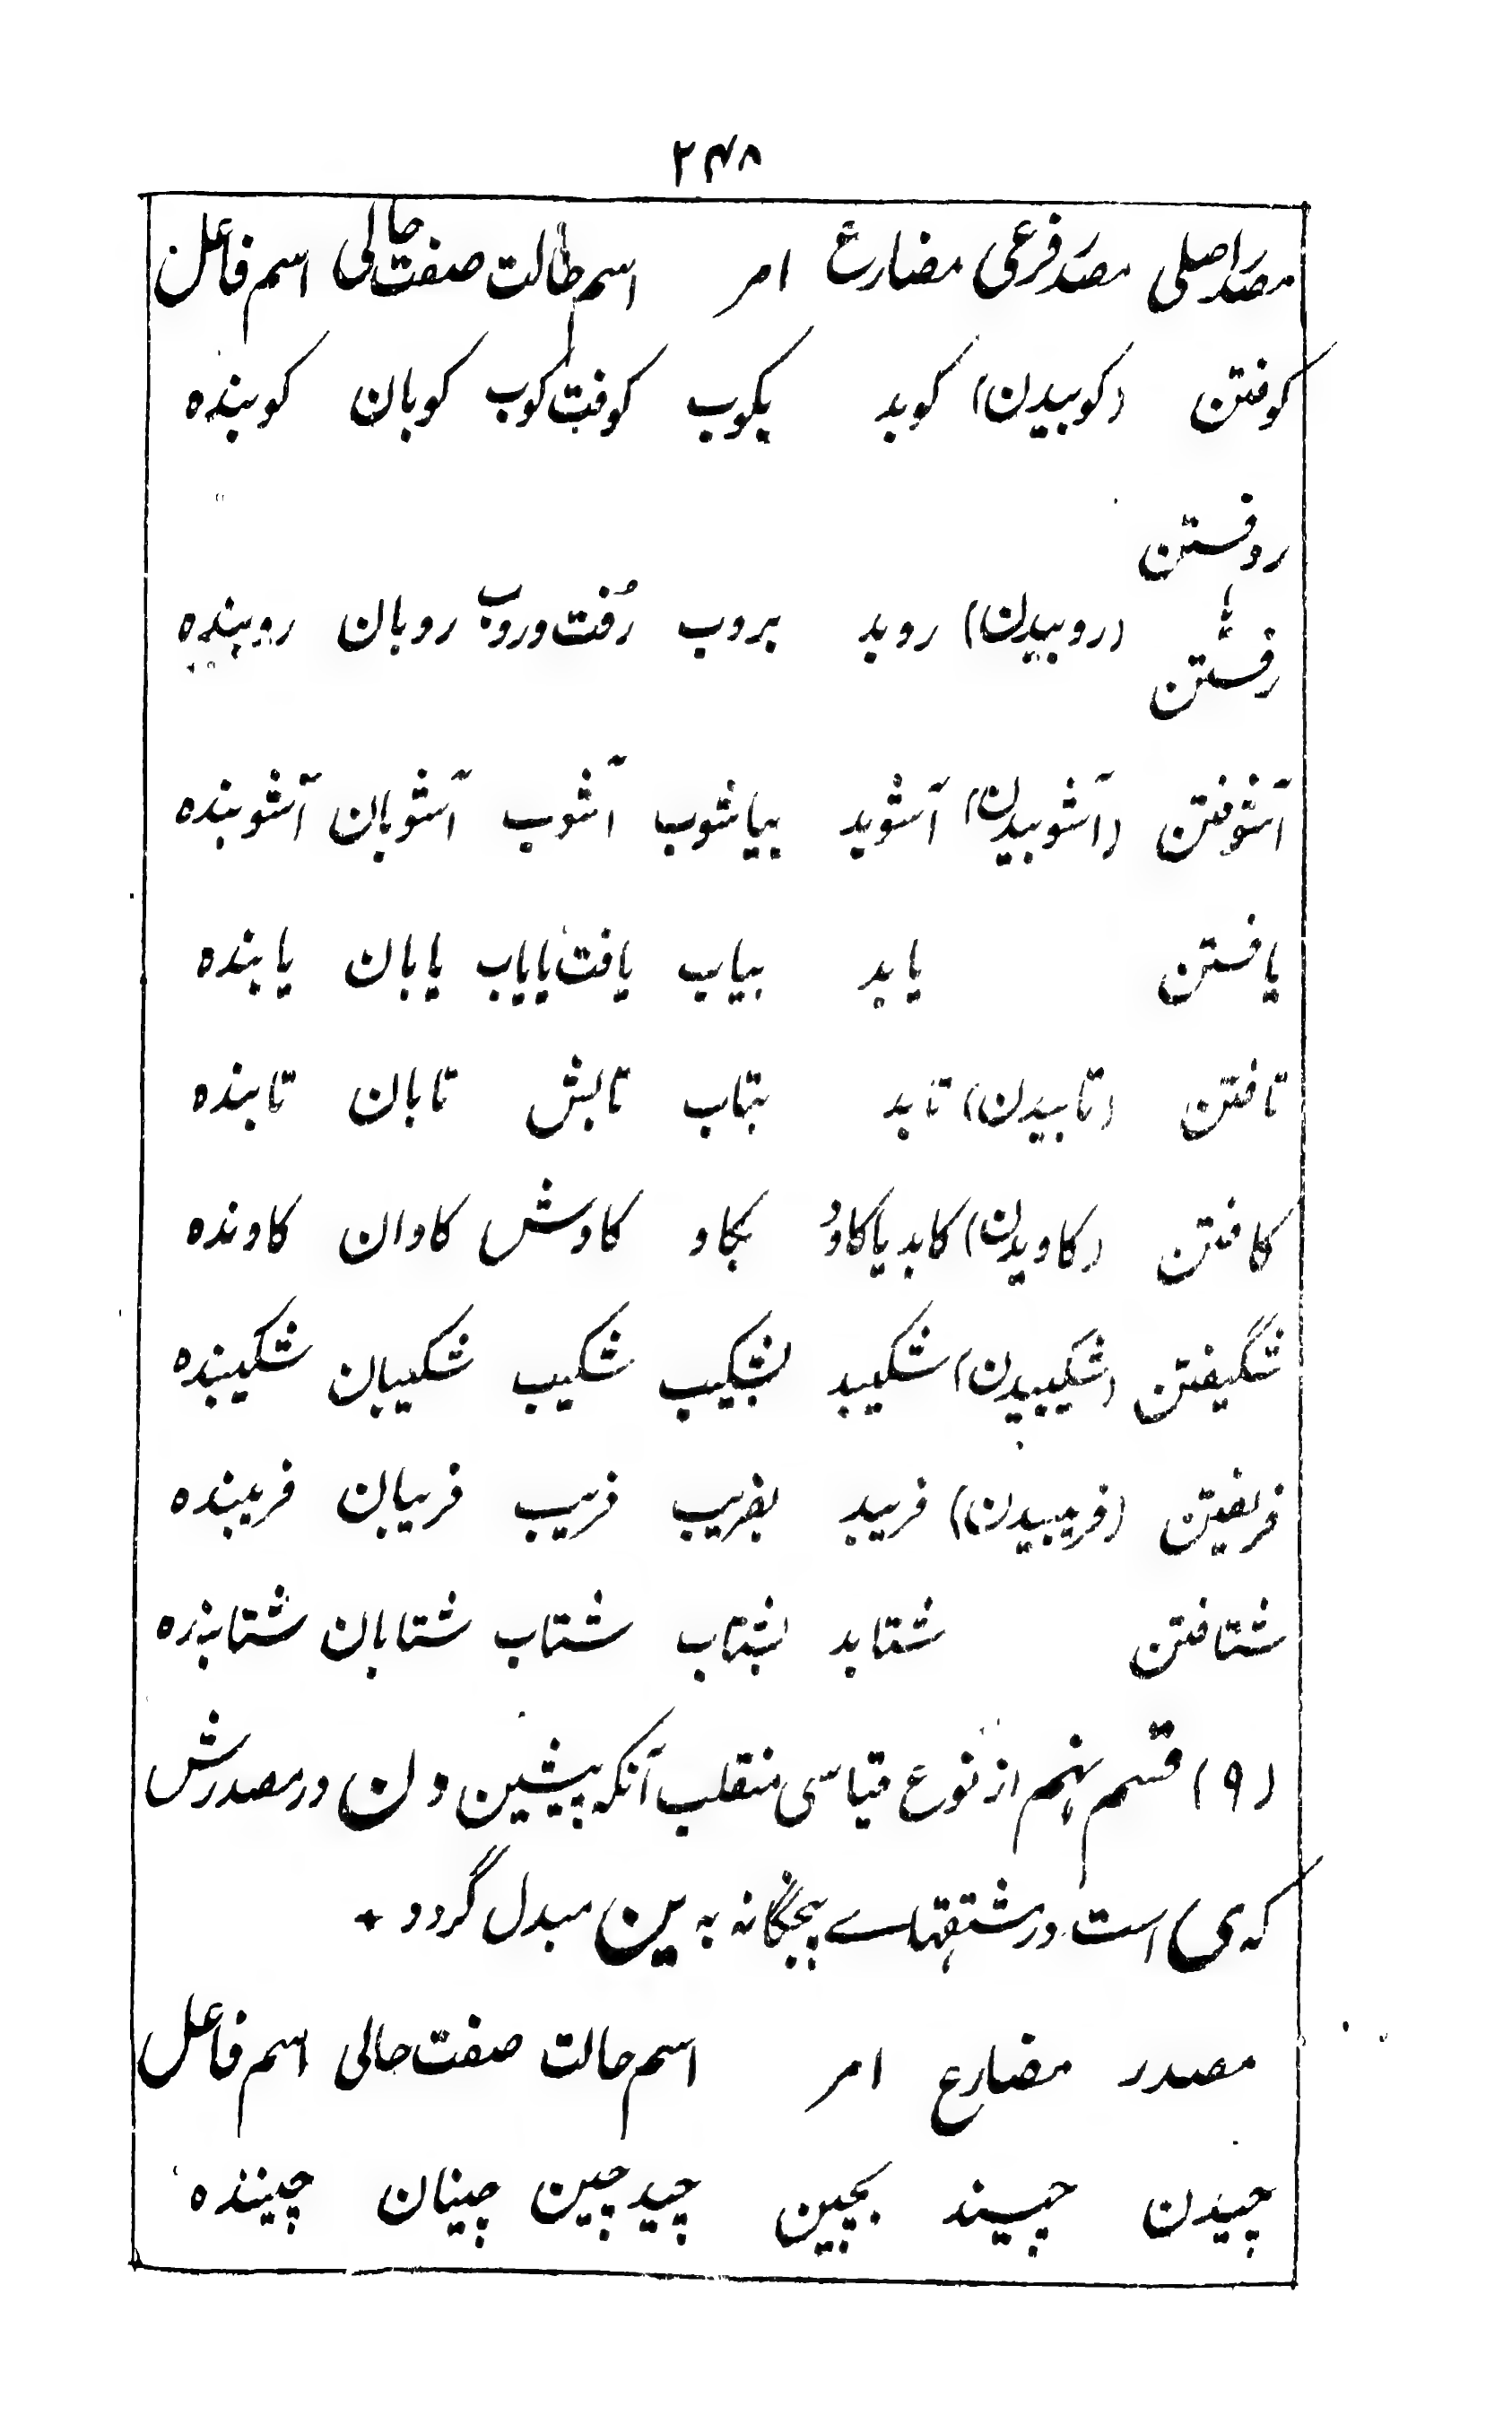 ۲۴۸
مصدر اصلی مصدر فرعی مضارع امر اسم حالت صفت حالی اسم فاعل
کوفتن (کوبیدن) کوبد بکوب کوفت کوب کوبان کوبنده
روفتن
یا
رفتن
(روبیدن) روبد بروب رُفت وروب روبان روبنده
آشوفتن (آشوبیدن) آشوبد بیاشوب آشوب آشوبان آشوبنده
یافتن یابد بیاب یافت یایاب یابان یابنده
تافتن (تابیدن) تابد بتاب تابش تابان تابنده
کافتن (کاویدن) کابد یا کاوَد بکاو کاوش کاوان کاونده
شگیفتن (شکیبیدن) شکیبد بشکیب شکیب شکیبان شکیبنده
فریفتن (فریبیدن) فریبد بفریب فریب فریبان فریبنده
شتافتن شتابد بشتاب شتاب شتابان شتابنده
(۹) قسم نهم از نوع قیاسی منقلب آنکه پیشین دن در مصدرش
که ی است در مشتقهاے پنجگانه به ین مبدل گردد +
مصدر مضارع امر اسم حالت صفت حالی اسم فاعل
چیدن چیند بچین چید چین چینان چیننده